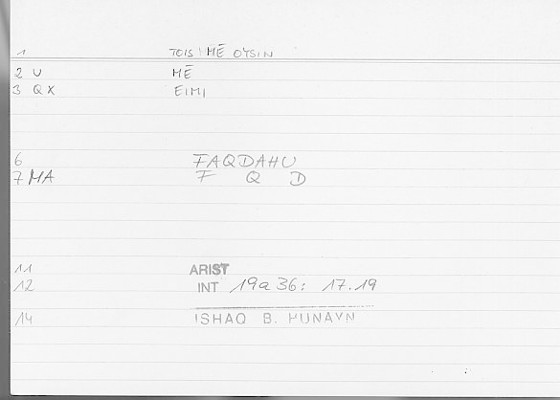 1 TOIS MĒ OYSIN
2 U MĒ
3 QX EIMI
6 FAQDAHU
7 MA F Q D
11 ARIST
12 INT 19a36: 17.19
14 ISHAQ B. HUNAYN